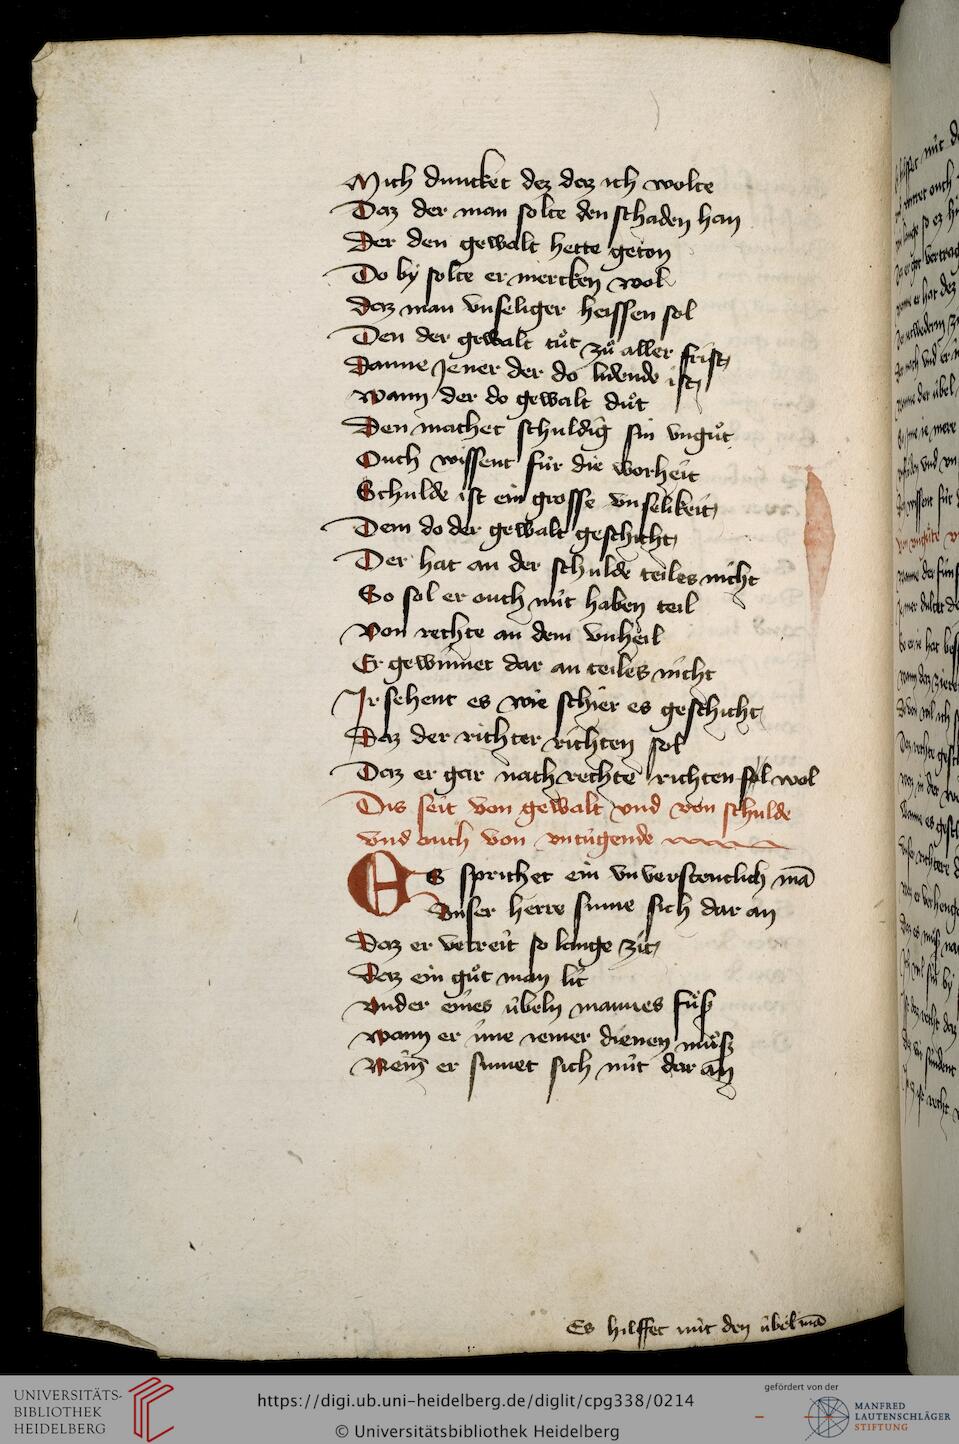 Mich duncket dez daz ich wolte
Daz der man solte den schaden han
Der den gewalt hette geton
Do by solte er mercken wol
Daz man vnseliger heissen sol
Den der gewalt tuͦt zuͦ aller frist
Danne Jener der do lidende ist
Wann der do gewalt duͦt
Den machet schuldig sin vnguͦt
Ouch wissent fúr die worheit
Schulde ist ein grosse vnselikeit
Dem do der gewalt geschicht
Der hat an der schulde teiles nicht
So sol er ouch nút haben teil
Von rechte an dem vnheil
Er gewinnet dar an teiles nicht
Jr sehent es wie schier es geschicht
Daz der richter richten sol
Daz er gar nach rechte richten sol wol
Dis seit von gewalt vnd von schulde
vnd ouch von vntúgende
ES sprichet ein vnverstentlich mā
Vnser herre sinne sich dar an
Daz er vertreit so lange zit
Daz ein guͦt man lit
Vnder eines úbeln mannes fuͤsß
Wann er ime iemer dienen muͦsß
Wein er sinnet sich nút dar an
Es hilffet nút den úbel mā
UNIVERSITÄTS-
BIBLIOTHEK
HEIDELBERG
https://digi.ub.uni-heidelberg.de/diglit/cpg338/0214
© Universitätsbibliothek Heidelberg
gefördert von der
MANFRED
LAUTENSCHLÄGER
STIFTUNG